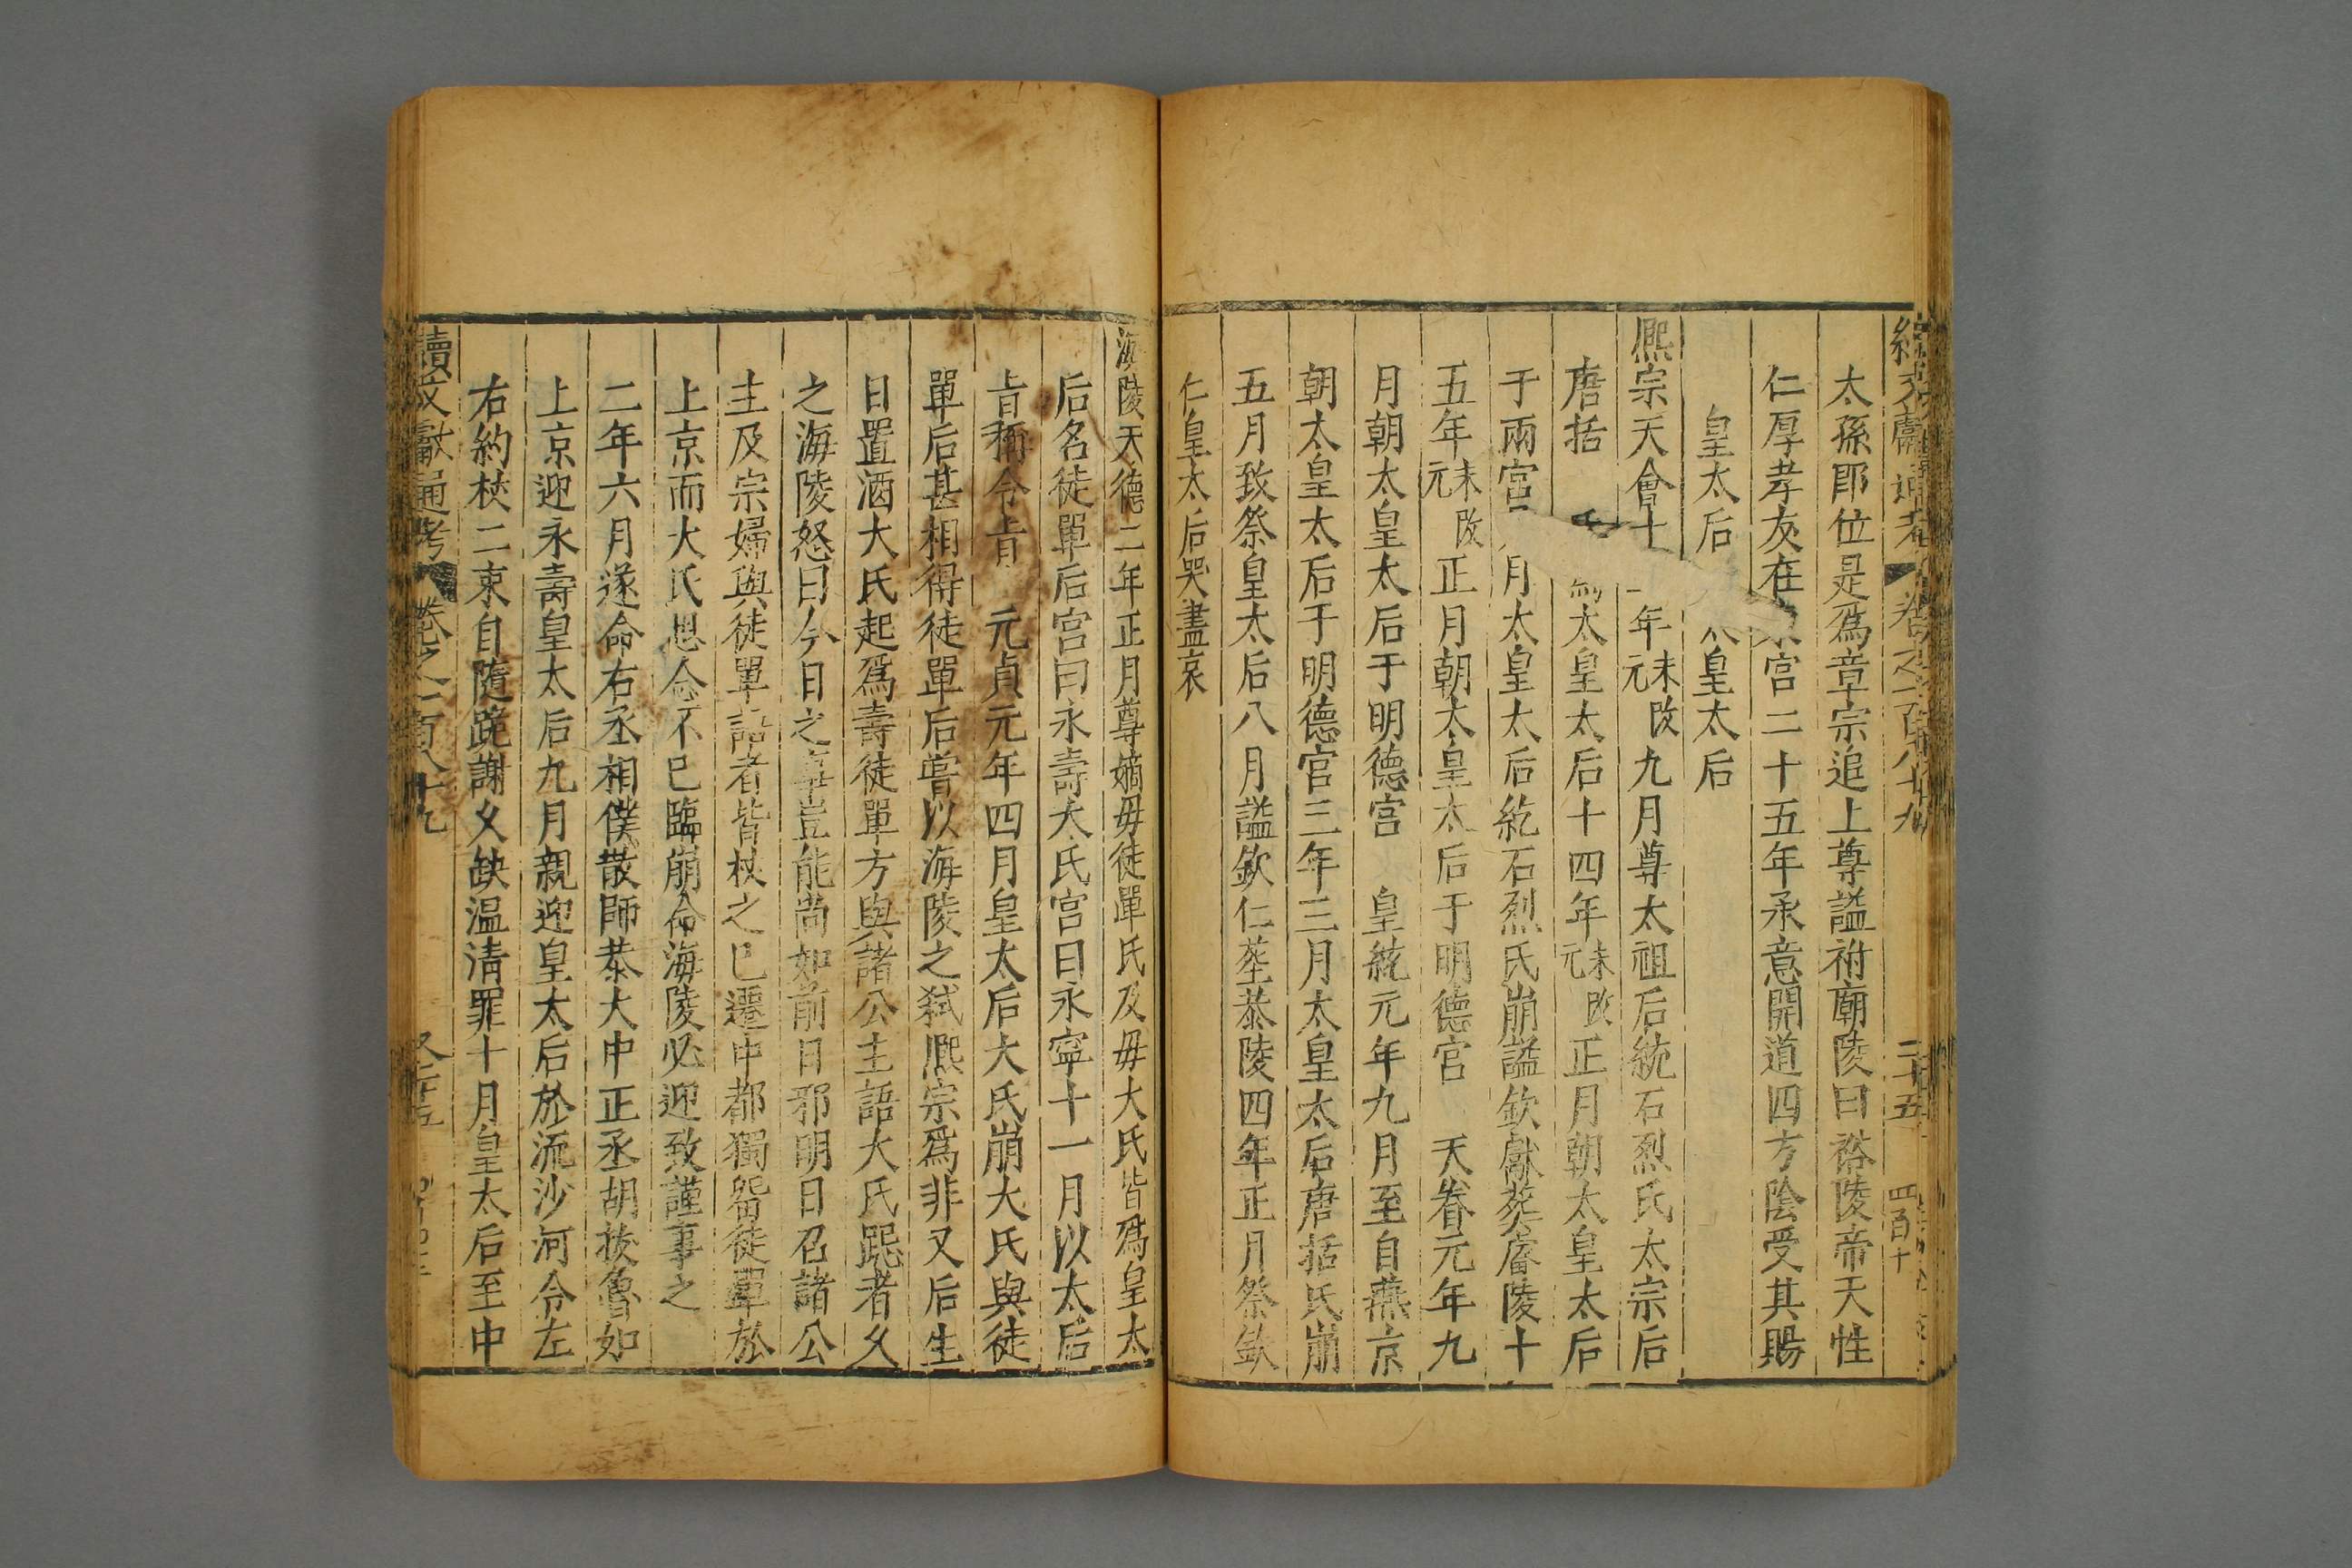 續文獻通考 卷之一百八十九 二十五
太孫即位是爲章宗追上尊謚祔廟陵曰裕陵帝天性
仁厚孝友在東宮二十五年承意開道四方陰受其賜
皇太后 太皇太后
熈宗天會十 年未改元九月尊太祖后紇石烈氏太宗后
唐括氏爲太皇太后十四年未改元正月朝太皇太后
于兩宮 月太皇太后紇石烈氏崩謚欽獻葬睿陵十
五年未改元正月朝太皇太后于明德宮 天眷元年九
月朝太皇太后于明德宮 皇統元年九月至自燕京
朝太皇太后于明德宮三年三月太皇太后唐括氏崩
五月致祭皇太后八月謚欽仁塟恭陵四年正月祭欽
仁皇太后哭盡哀
海陵天德二年正月尊嫡母徒單氏及母大氏皆爲皇太
后名徒單后宮曰永壽大氏宮曰永寧十一月以太后
旨稱令旨 元貞元年四月皇太后大氏崩大氏與徒
單后甚相得徒單后嘗以海陵之弒熈宗爲非又后生
日置酒大氏起爲壽徒單方與諸公主語大氏跽者久
之海陵怒曰今日之事豈能尚如前日邪明日召諸公
主及宗婦與徒單語者皆杖之已遷中都獨畱徒單於
上京而大氏思念不已臨崩命海陵必迎致謹事之
二年六月遂命右丞相僕散師恭大中正丞胡拔魯如
上京迎永壽皇太后九月親迎皇太后於流沙河令左
右約杖二束自隨跪謝久缺温凊罪十月皇太后至中
續文獻通考 卷之一百八十九 又二十五